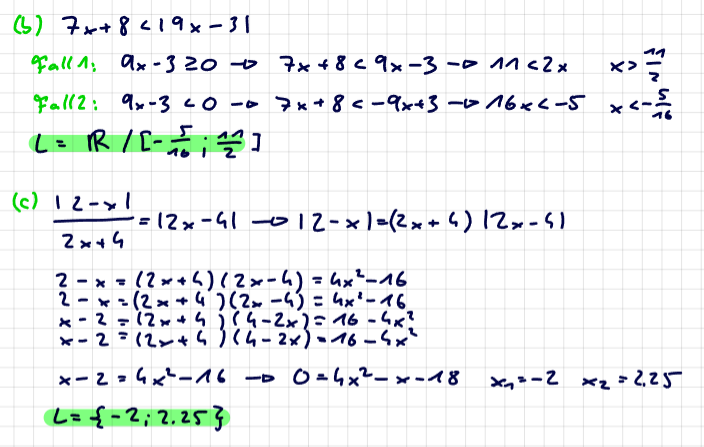 (b) 7x+8 < |9x-3|
Fall 1: 9x-3 ≥ 0 → 7x+8 < 9x-3 → 11 < 2x x > 11/2
Fall 2: 9x-3 < 0 → 7x+8 < -9x+3 → 16x < -5 x < -5/16
L = ℝ / [-5/16 ; 11/2]
(c) |2-x| / 2x+4 = |2x-4| → |2-x| = (2x+4) |2x-4|
2-x = (2x+4)(2x-4) = 4x²-16
2-x = (2x+4)(2x-4) = 4x²-16
x-2 = (2x+4)(4-2x) = 16-4x²
x-2 = (2x+4)(4-2x) = 16-4x²
x-2 = 4x²-16 → 0 = 4x²-x-18 x₁=-2 x₂=2.25
L = {-2; 2.25}